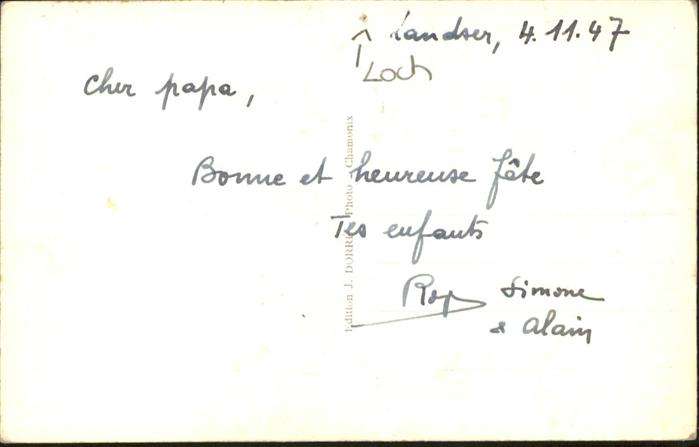 Landser, 4.11.47
Loch
Cher papa,
Bonne et heureuse fête
Tes enfants
Simone
& Alain
Edition J. DORRE Photo Chamonix